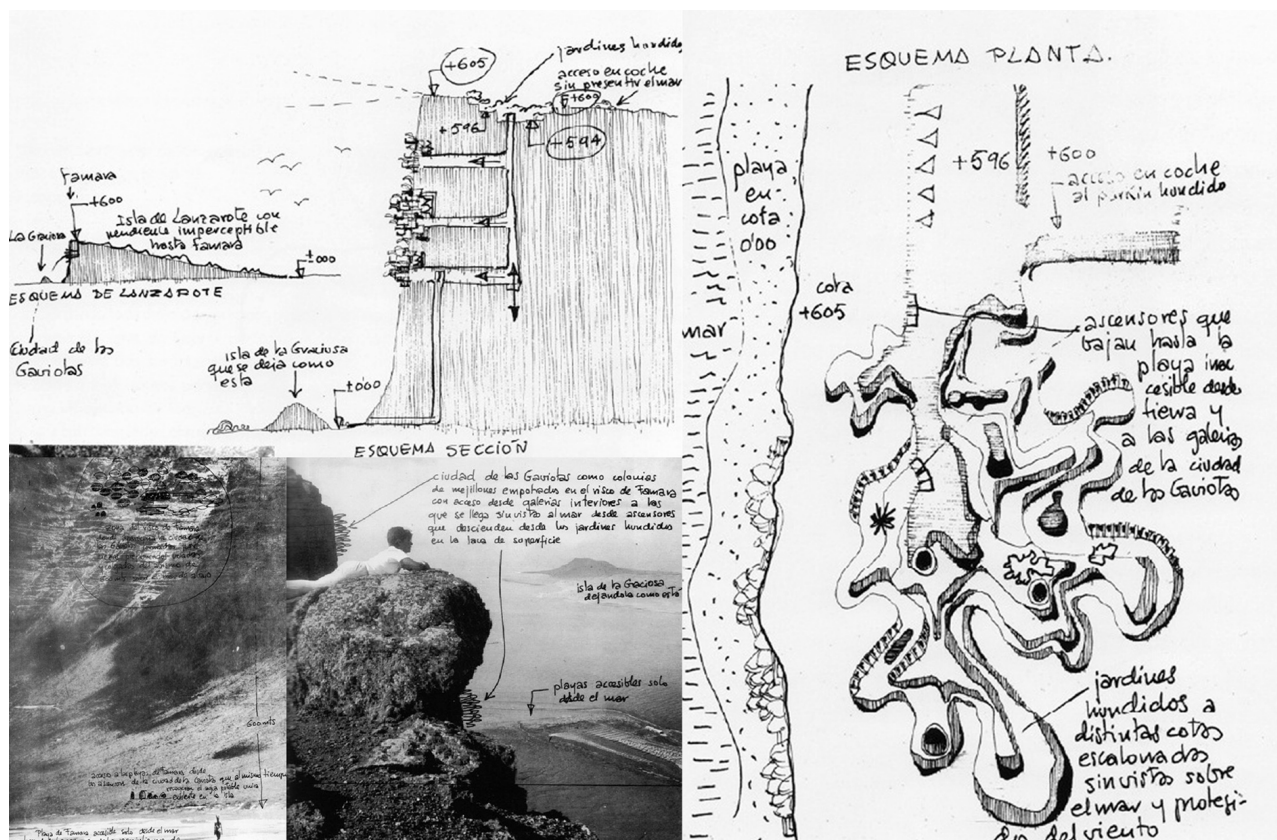 +605
jardines hundidos
acceso en coche
sin presentir el mar
+600
+596
+594
Famara
+600
Isla de Lanzarote con
pendiente imperceptible
hasta Famara
La Graciosa
±000
ESQUEMA DE LANZAROTE
Ciudad de las
Gaviotas
isla de la Graciosa
que se deja como
esta
±0'00
ESQUEMA SECCIÓN
ciudad de las Gaviotas como colonias
de mejillones empotrados en el risco de Famara
con acceso desde galerias interiores a las
que se llega sin vistas al mar desde ascensores
que descienden desde los jardines hundidos
en la lava de superficie
isla de la Graciosa
dejandola como está
playas accesibles solo
desde el mar
600 mts
Playa de Famara accesible solo desde el mar
ESQUEMA PLANTA.
playa
en
cota
0'00
mar
cota
+605
+596
+600
acceso en coche
al parkin hundido
ascensores que
bajan hasta la
playa inac
cesible desde
tierra y
a las galerias
de la ciudad
de las Gaviotas
jardines
hundidos a
distintas cotas
escalonados
sin vistas sobre
el mar y protegi-
dos del viento